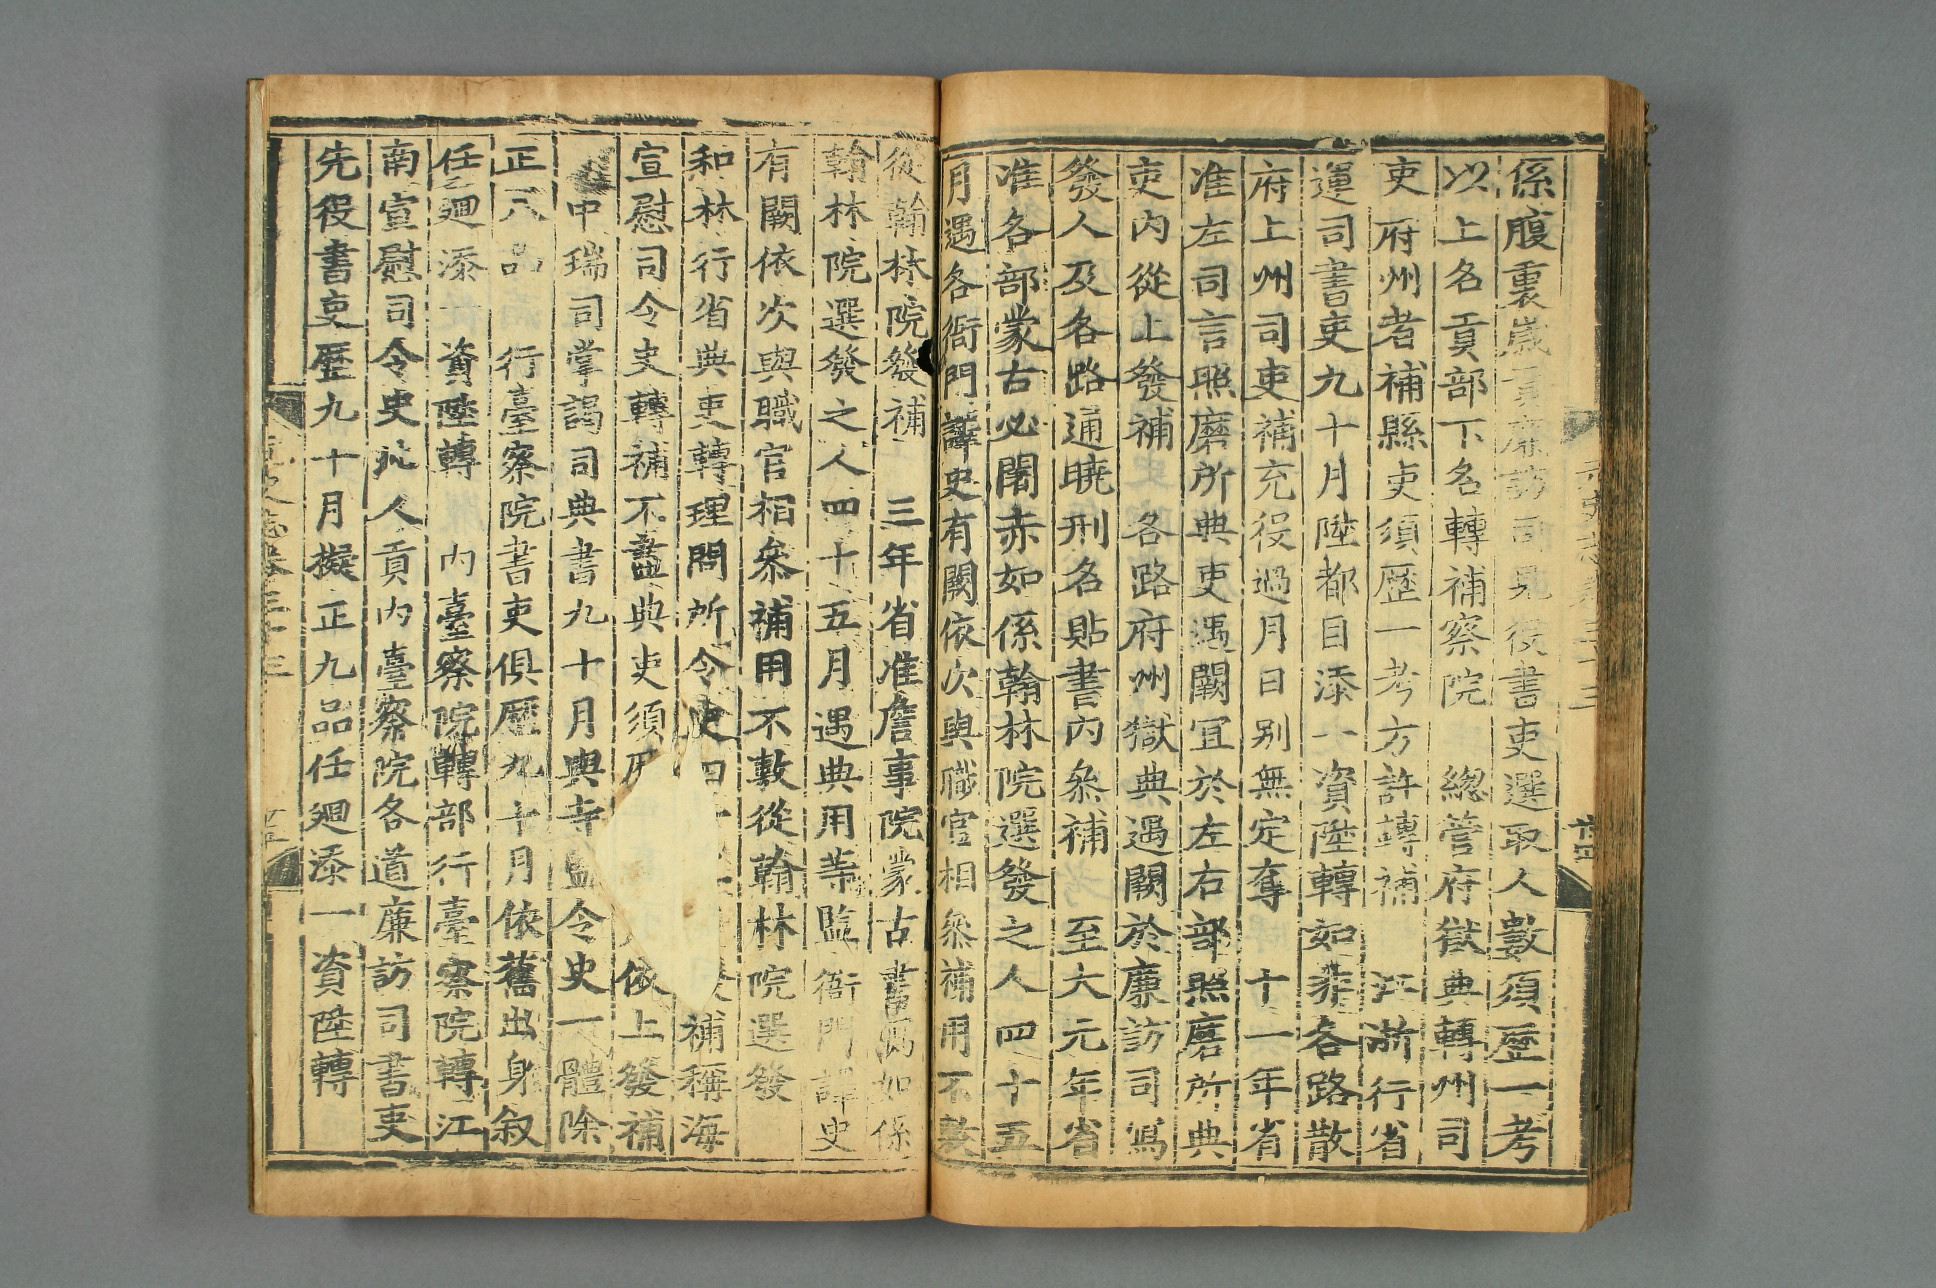 係腹裏歲貢廉訪司見役書吏選取人數須歷一考
以上名貢部下名轉補察院　總管府獄典轉州司
吏府州者補縣吏須歷一考方許轉補　江浙行省
運司書吏九十月陞都目添一資陞轉如非各路散
府上州司吏補充役過月日別無定奪　十一年省
准左司言照磨所典吏遇闕宜於左右部照磨所典
吏內從上發補　各路府州獄典遇闕於廉訪司寫
發人及各路通曉刑名貼書內叅補　至大元年省
准各部蒙古必闍赤如係翰林院選發之人四十五
月遇各衙門譯史有闕依次與職官相叅補用不敷
從翰林院發補　三年省准詹事院蒙古書寫如係
翰林院選發之人四十五月遇典用等監衙門譯史
有闕依次與職官相叅補用不敷從翰林院選發
和林行省典吏轉理問所令史四補稱海
宣慰司令史轉補不盡典吏須依上發補
中瑞司掌謁司典書九十月與寺監令史一體除
正八品　行臺察院書吏俱歷九十月依舊出身敘
任迴添　資陞轉　內臺察院轉部行臺察院轉江
南宣慰司令史北人貢內臺察院各道廉訪司書吏
先役書吏歷九十月擬正九品任迴添一資陞轉
元史志卷三十三
廿四